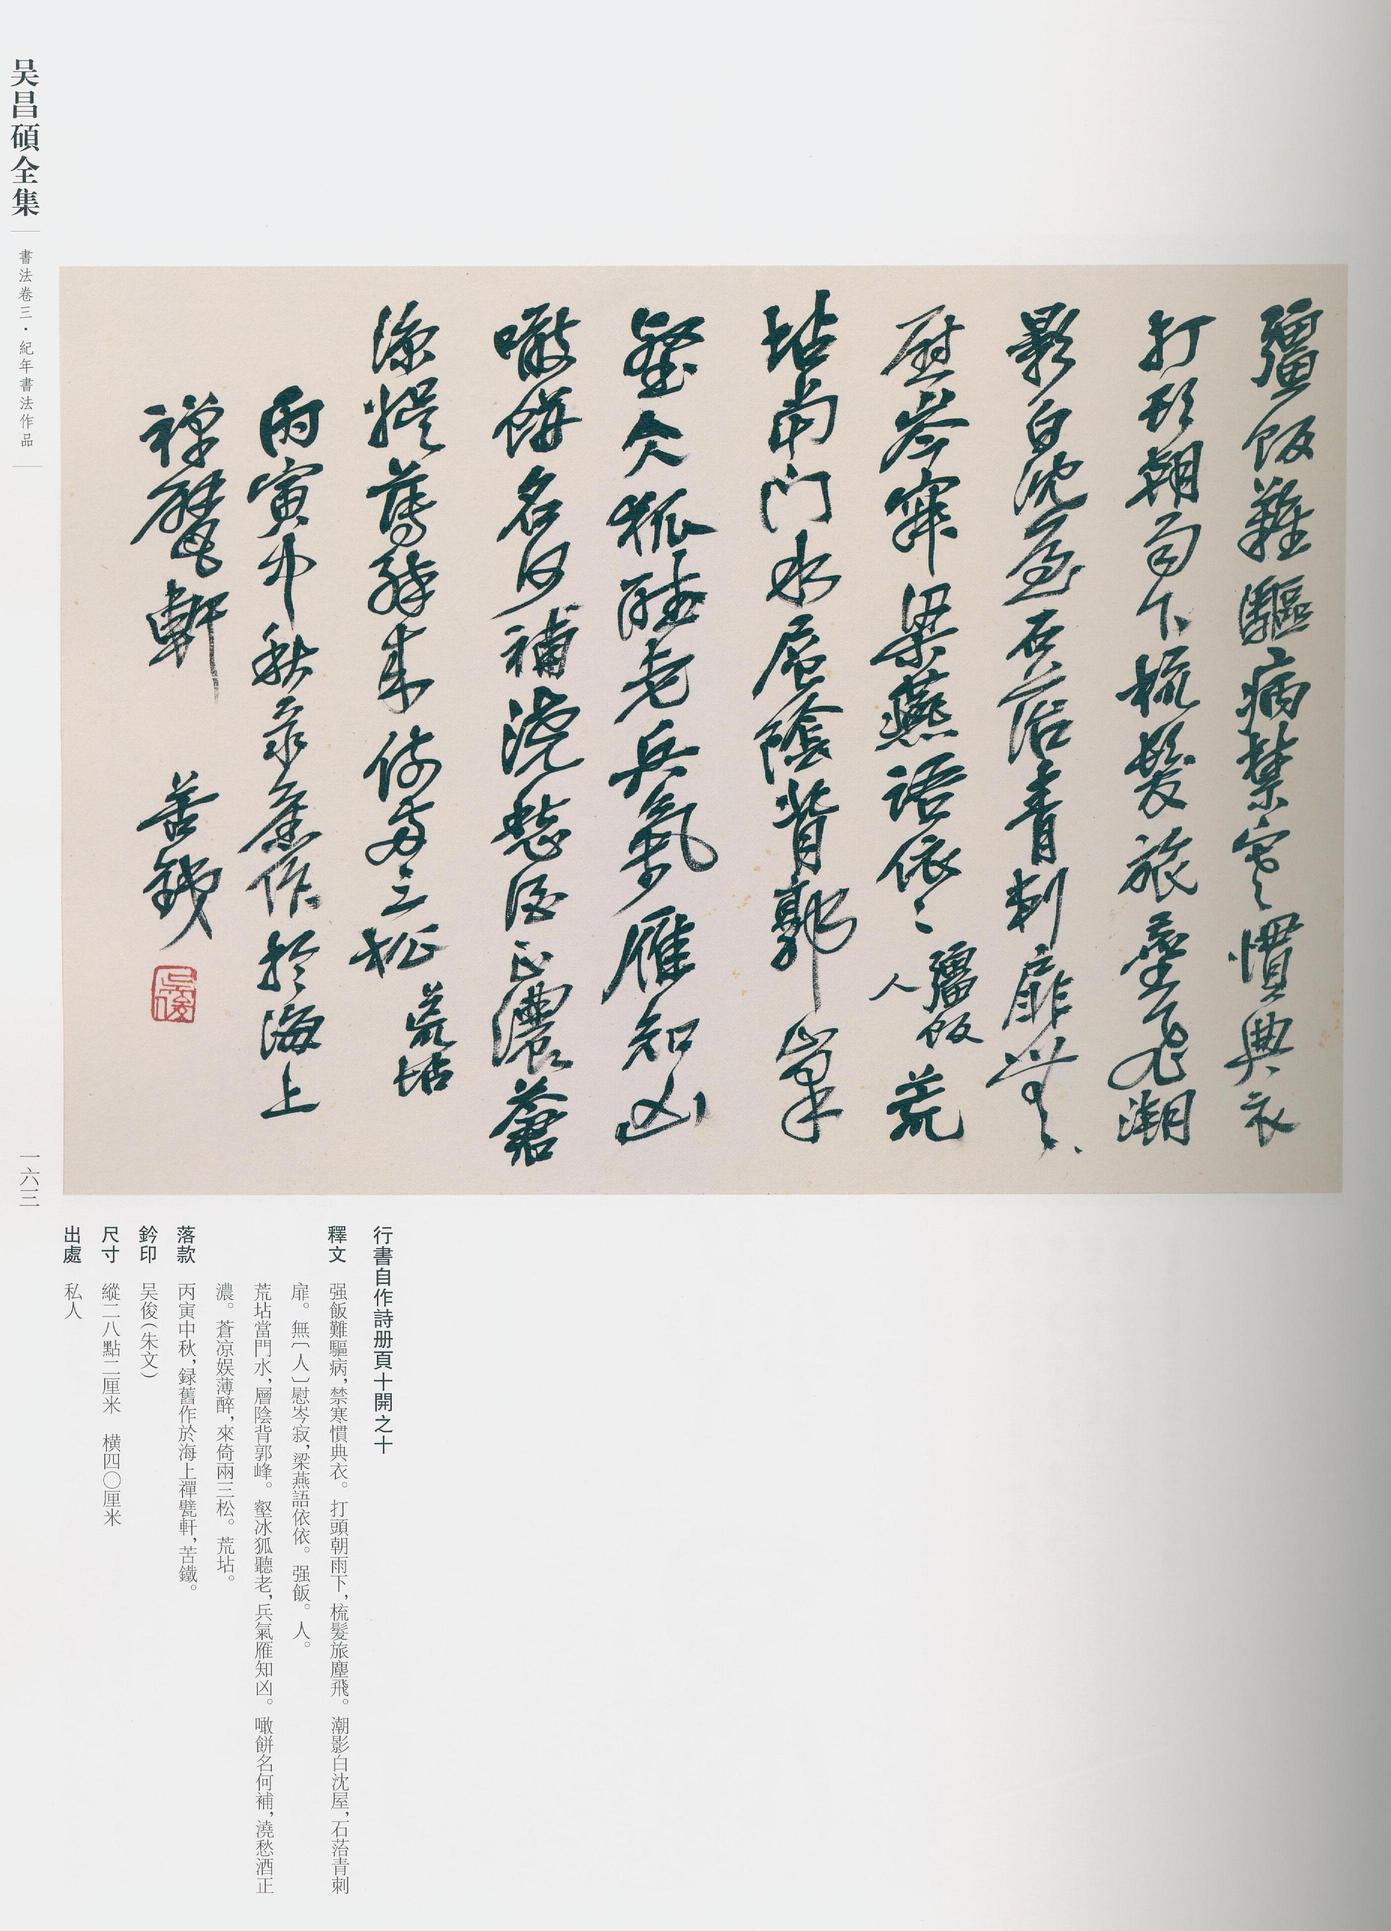 吴昌碩全集
書法卷三·紀年書法作品
一六三
彊飯難驅病禁寒慣典衣
打頭朝雨下梳髮旅塵飛潮
影白沈屋石菭青刺扉無
慰岑寂梁燕語依〻彊飯人荒
坫當門水層陰背郭峯
壑仌狐聽老兵氣雁知凶
噉餅名何補澆愁酒正濃蒼
凉娱薄醉来倚兩三松荒坫
丙寅中秋录舊作於海上
禪甓軒 苦鐵
吴俊
行書自作詩册頁十開之十
釋文 强飯難驅病，禁寒慣典衣。打頭朝雨下，梳髮旅塵飛。潮影白沈屋，石菭青刺
扉。無〔人〕慰岑寂，梁燕語依依。强飯。人。
荒坫當門水，層陰背郭峰。壑冰狐聽老，兵氣雁知凶。噉餅名何補，澆愁酒正
濃。蒼凉娱薄醉，來倚兩三松。荒坫。
落款 丙寅中秋，録舊作於海上禪甓軒，苦鐵。
鈐印 吴俊（朱文）
尺寸 縱二八點二厘米 横四〇厘米
出處 私人